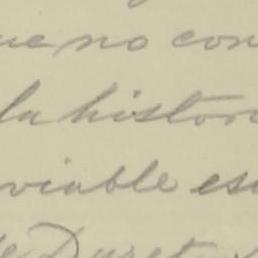 ue no con
la histor
viable es
de Duret